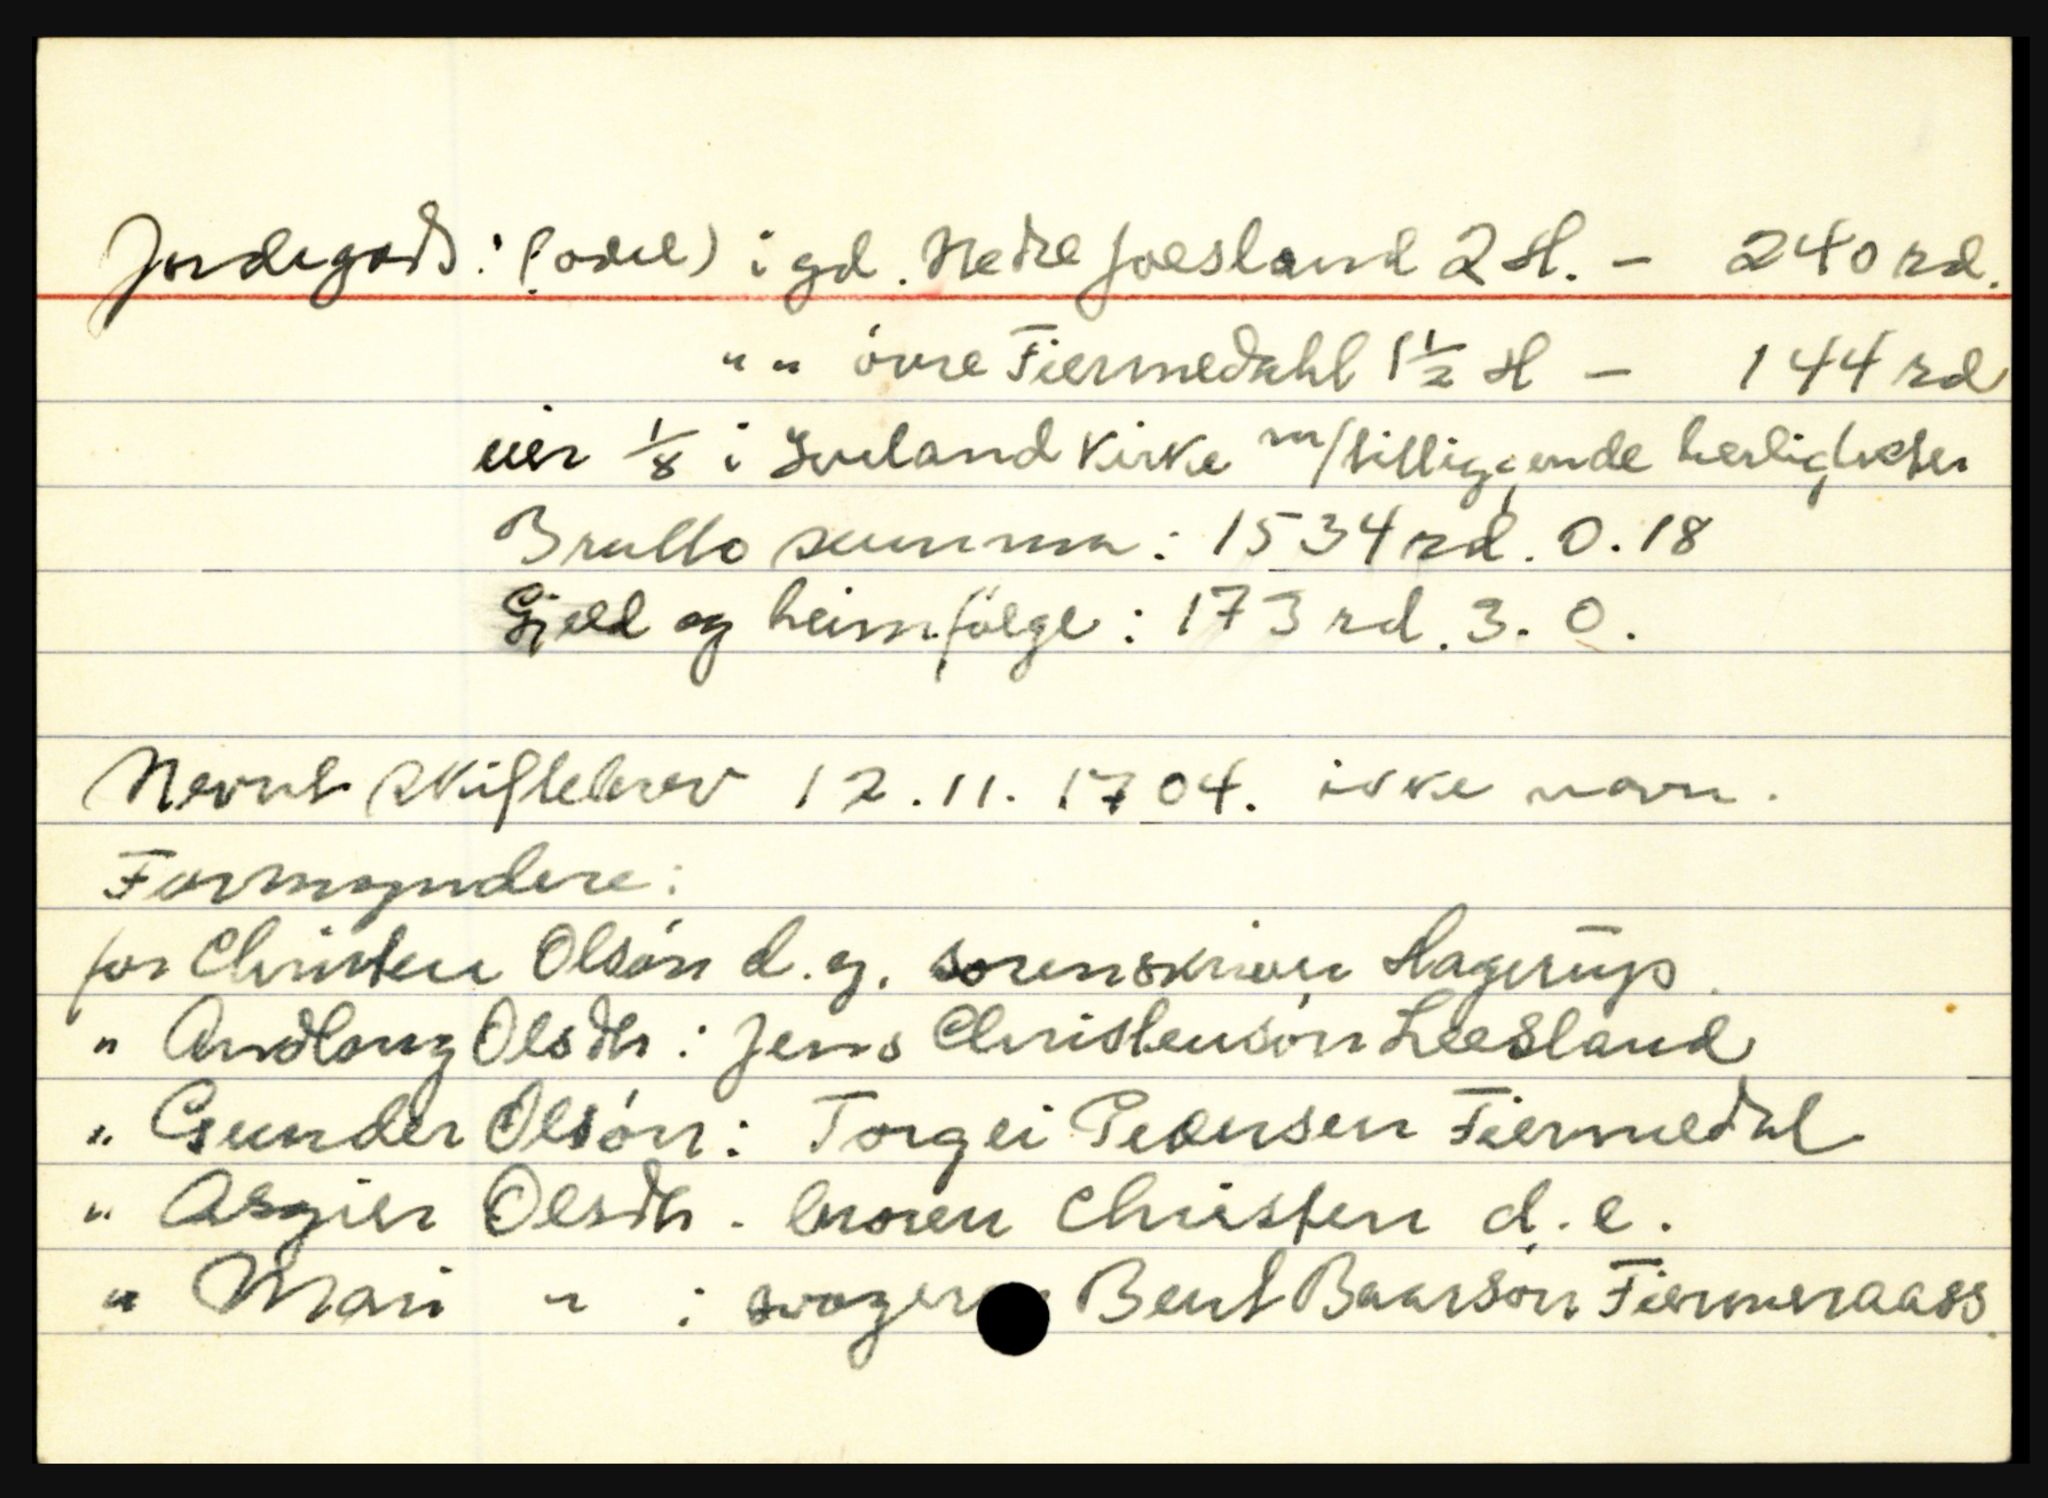 Jordegods: (odel) i gd. Nedre Joesland 2 H. - 240 rd.
" " övre Fiermedahl 1 1/2 H - 144 rd
eier 1/8 i Iveland Kirke m/tilliggende herligheter
Brutto summa: 1534 rd. 0.18
Gjeld og heimfølge: 173 rd. 3. 0.
Nevnt skiftebrev 12.11.1704. ikke navn.
Formyndere:
for Christen Olsón d.y. sorenskriver Hagerup.
" Andloug Olsdtr: Jens Christensón Leesland
" Gunder Olsón: Torgei Pedersen Fiermedal
" Asgier Olsdtr. broren Christen d.e.
" Mari " : svogeren Bent Baarsón Fiermeraass